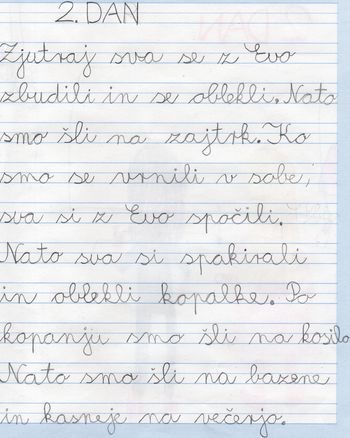 2. DAN
Zjutraj sva se z Evo
zbudili in se oblekli. Nato
smo šli na zajtrk. Ko
smo se vrnili v sobe,
sva si z Evo spočili.
Nato sva si spakirali
in oblekli kopalke. Po
kopanju smo šli na kosilo
Nato smo šli na bazene
in kasneje na večerjo.